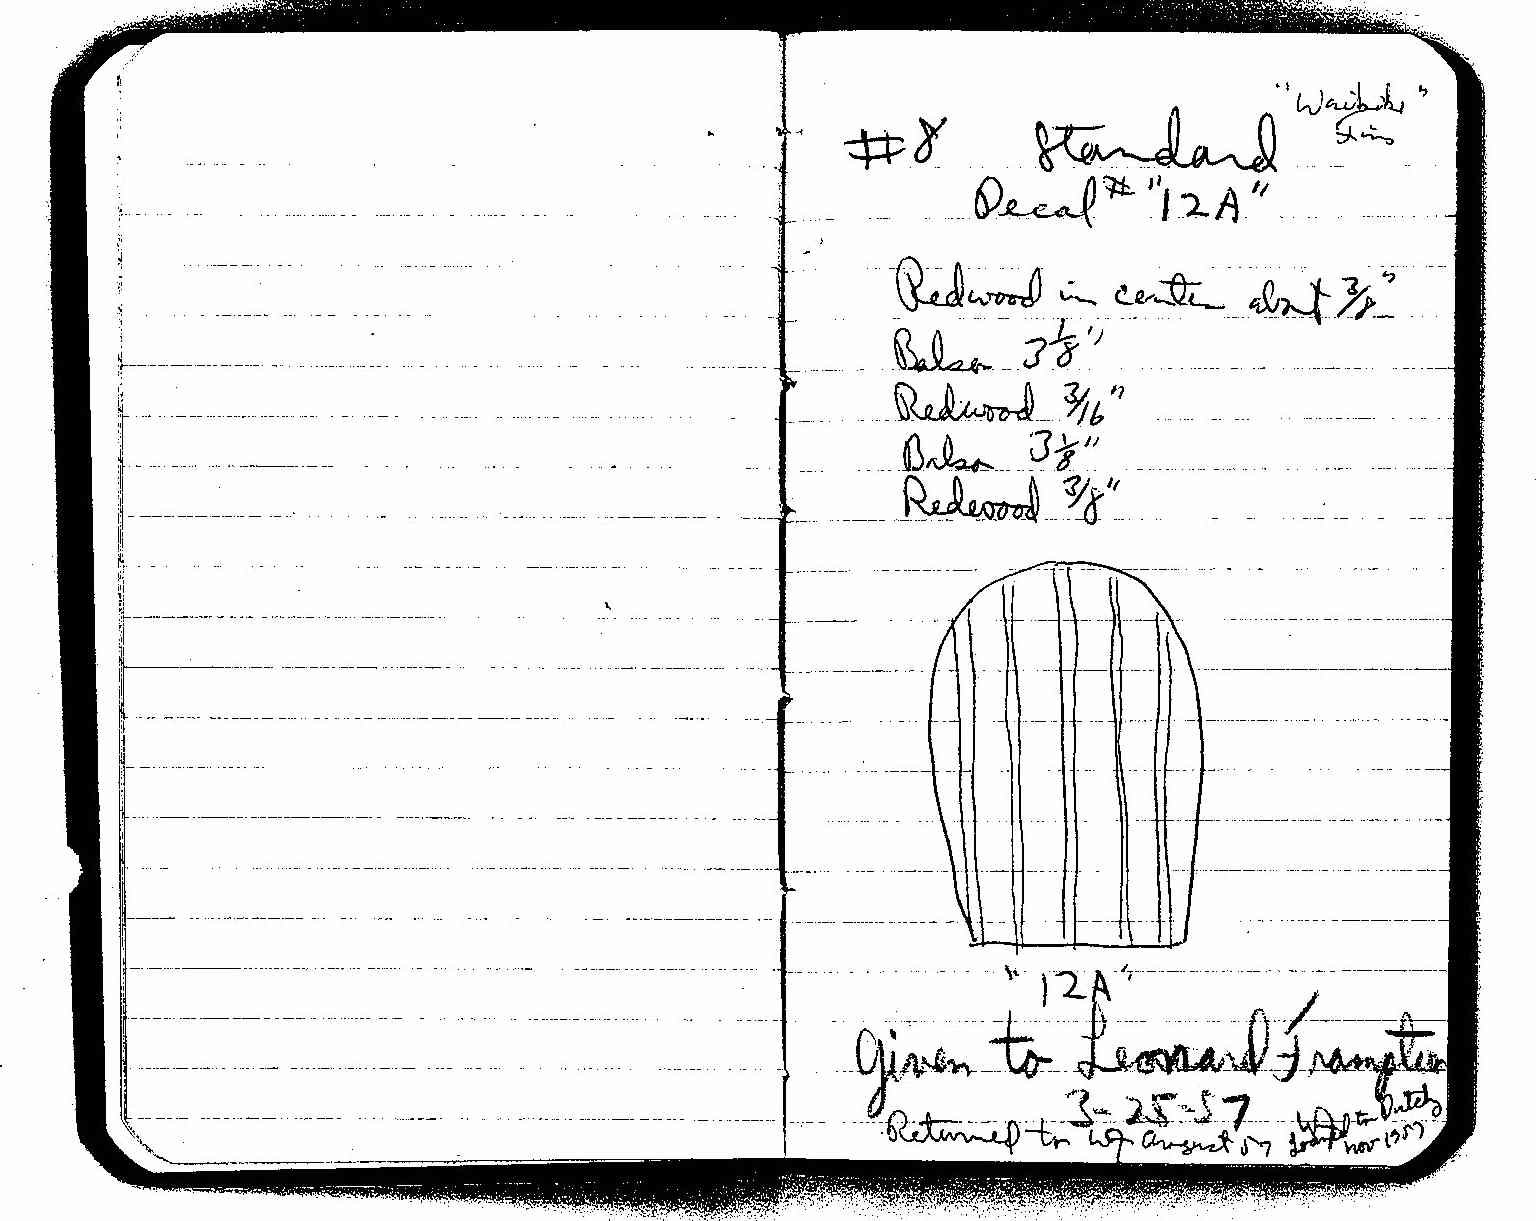 "Waikiki"
#8 Standard
Decal # "12A"
Redwood in center about 3/8"
Balsa 3 1/8"
Redwood 3/16"
Balsa 3 1/8"
Redewood 3/8"
"12A"
Given to Leonard Frampton
3-25-57
Returned to August 57
Loaned to Dutch
Nov 1957